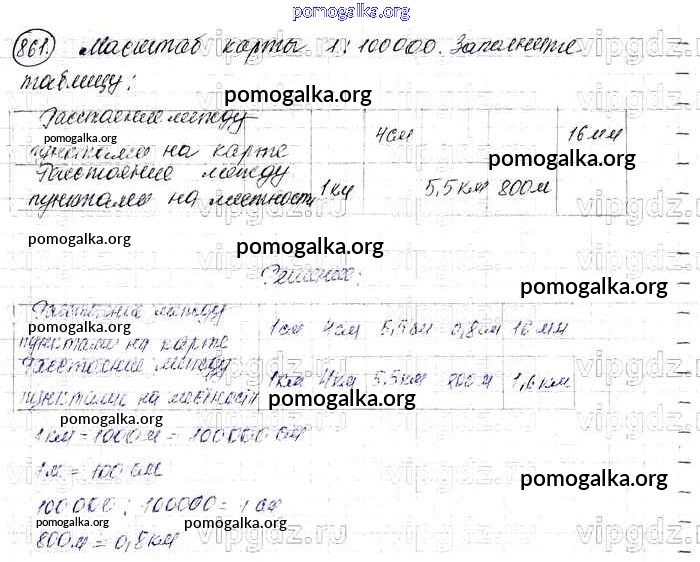 pomogalka.org
861. Масштаб карты 1:100000. Заполните
таблицу:
pomogalka.org
Расстояние между
пунктами на карте 4см 16мм
pomogalka.org
pomogalka.org
Расстояние между
пунктами на местности 1км 5,5км 800м
pomogalka.org
pomogalka.org
Решение:
pomogalka.org
Расстояние между
пунктами на карте 1см 4см 5,5см 0,8см 16мм
pomogalka.org
pomogalka.org
Расстояние между
пунктами на местности 1км 4км 5,5км 800м 1,6км
pomogalka.org
pomogalka.org
1км = 1000м = 100000см
1м = 100см
pomogalka.org
100000 : 100000 = 1см
pomogalka.org
pomogalka.org
800м = 0,8км
vipgdz.ru